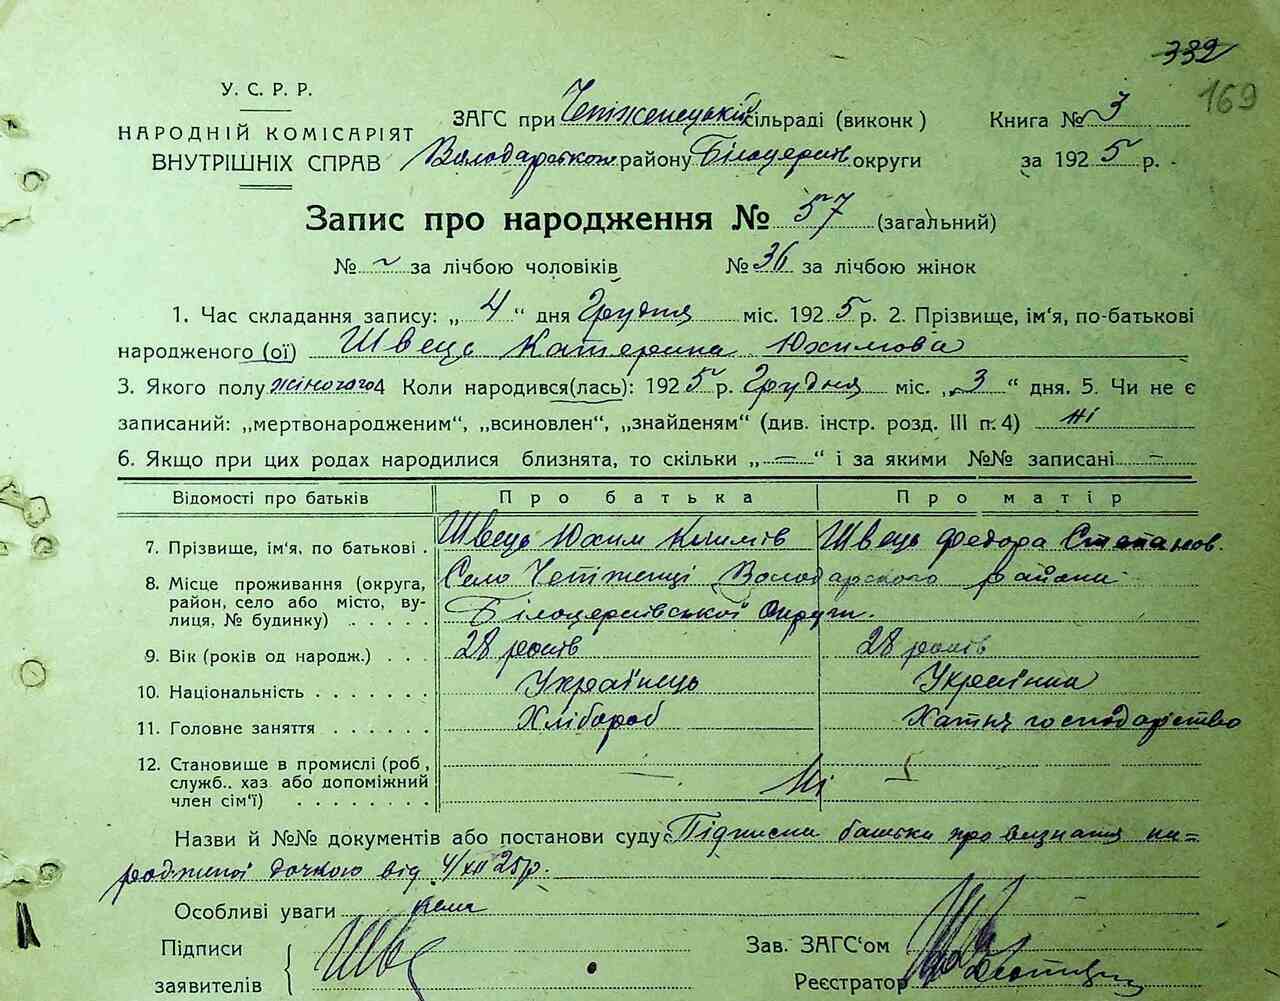 332
169
У. С. Р. Р.
НАРОДНІЙ КОМІСАРІЯТ
ВНУТРІШНІХ СПРАВ
ЗАГС при сільраді (виконк) Книга № 3
Володарського району Білоцерків округи за 1925 р.
Запис про народження № 57 (загальний)
№ ~ за лічбою чоловіків № 36 за лічбою жінок
1. Час складання запису: „ 4 “ дня Грудня міс. 1925 р. 2. Прізвище, ім'я, по-батькові
народженого (ої) Швець Катерина Юхимова
3. Якого полу жіночого 4 Коли народився(лась): 1925 р. Грудня міс. „ 3 “ дня. 5. Чи не є
записаний: „мертвонародженим“, „всиновлен“, „знайденям“ (див. інстр. розд. III п. 4) ні
6. Якщо при цих родах народилися близнята, то скільки „ — “ і за якими №№ записані —
Відомості про батьків Про батька Про матір
7. Прізвище, ім'я, по батькові . Швець Юхим Климів Швець Федора Степанов.
8. Місце проживання (округа, район, село або місто, вулиця, № будинку) . . . . .
Село Володарського району
Білоцерківської Округи.
9. Вік (років од народж.) . . . 28 років 28 років
10. Національність . . . . . . . Українець Українка
11. Головне заняття . . . . . . Хлібороб Хатня господарство
12. Становище в промислі (роб, служб.. хаз або допоміжний член сім'ї) . . . . . . . .
— Ні
Назви й №№ документів або постанови суду: Підписка батька про визнання на=
родженої дочкою від 4/XII 25 р.
Особливі уваги нема
Підписи
заявителів
Шве
Зав. ЗАГС'ом
Реєстратор